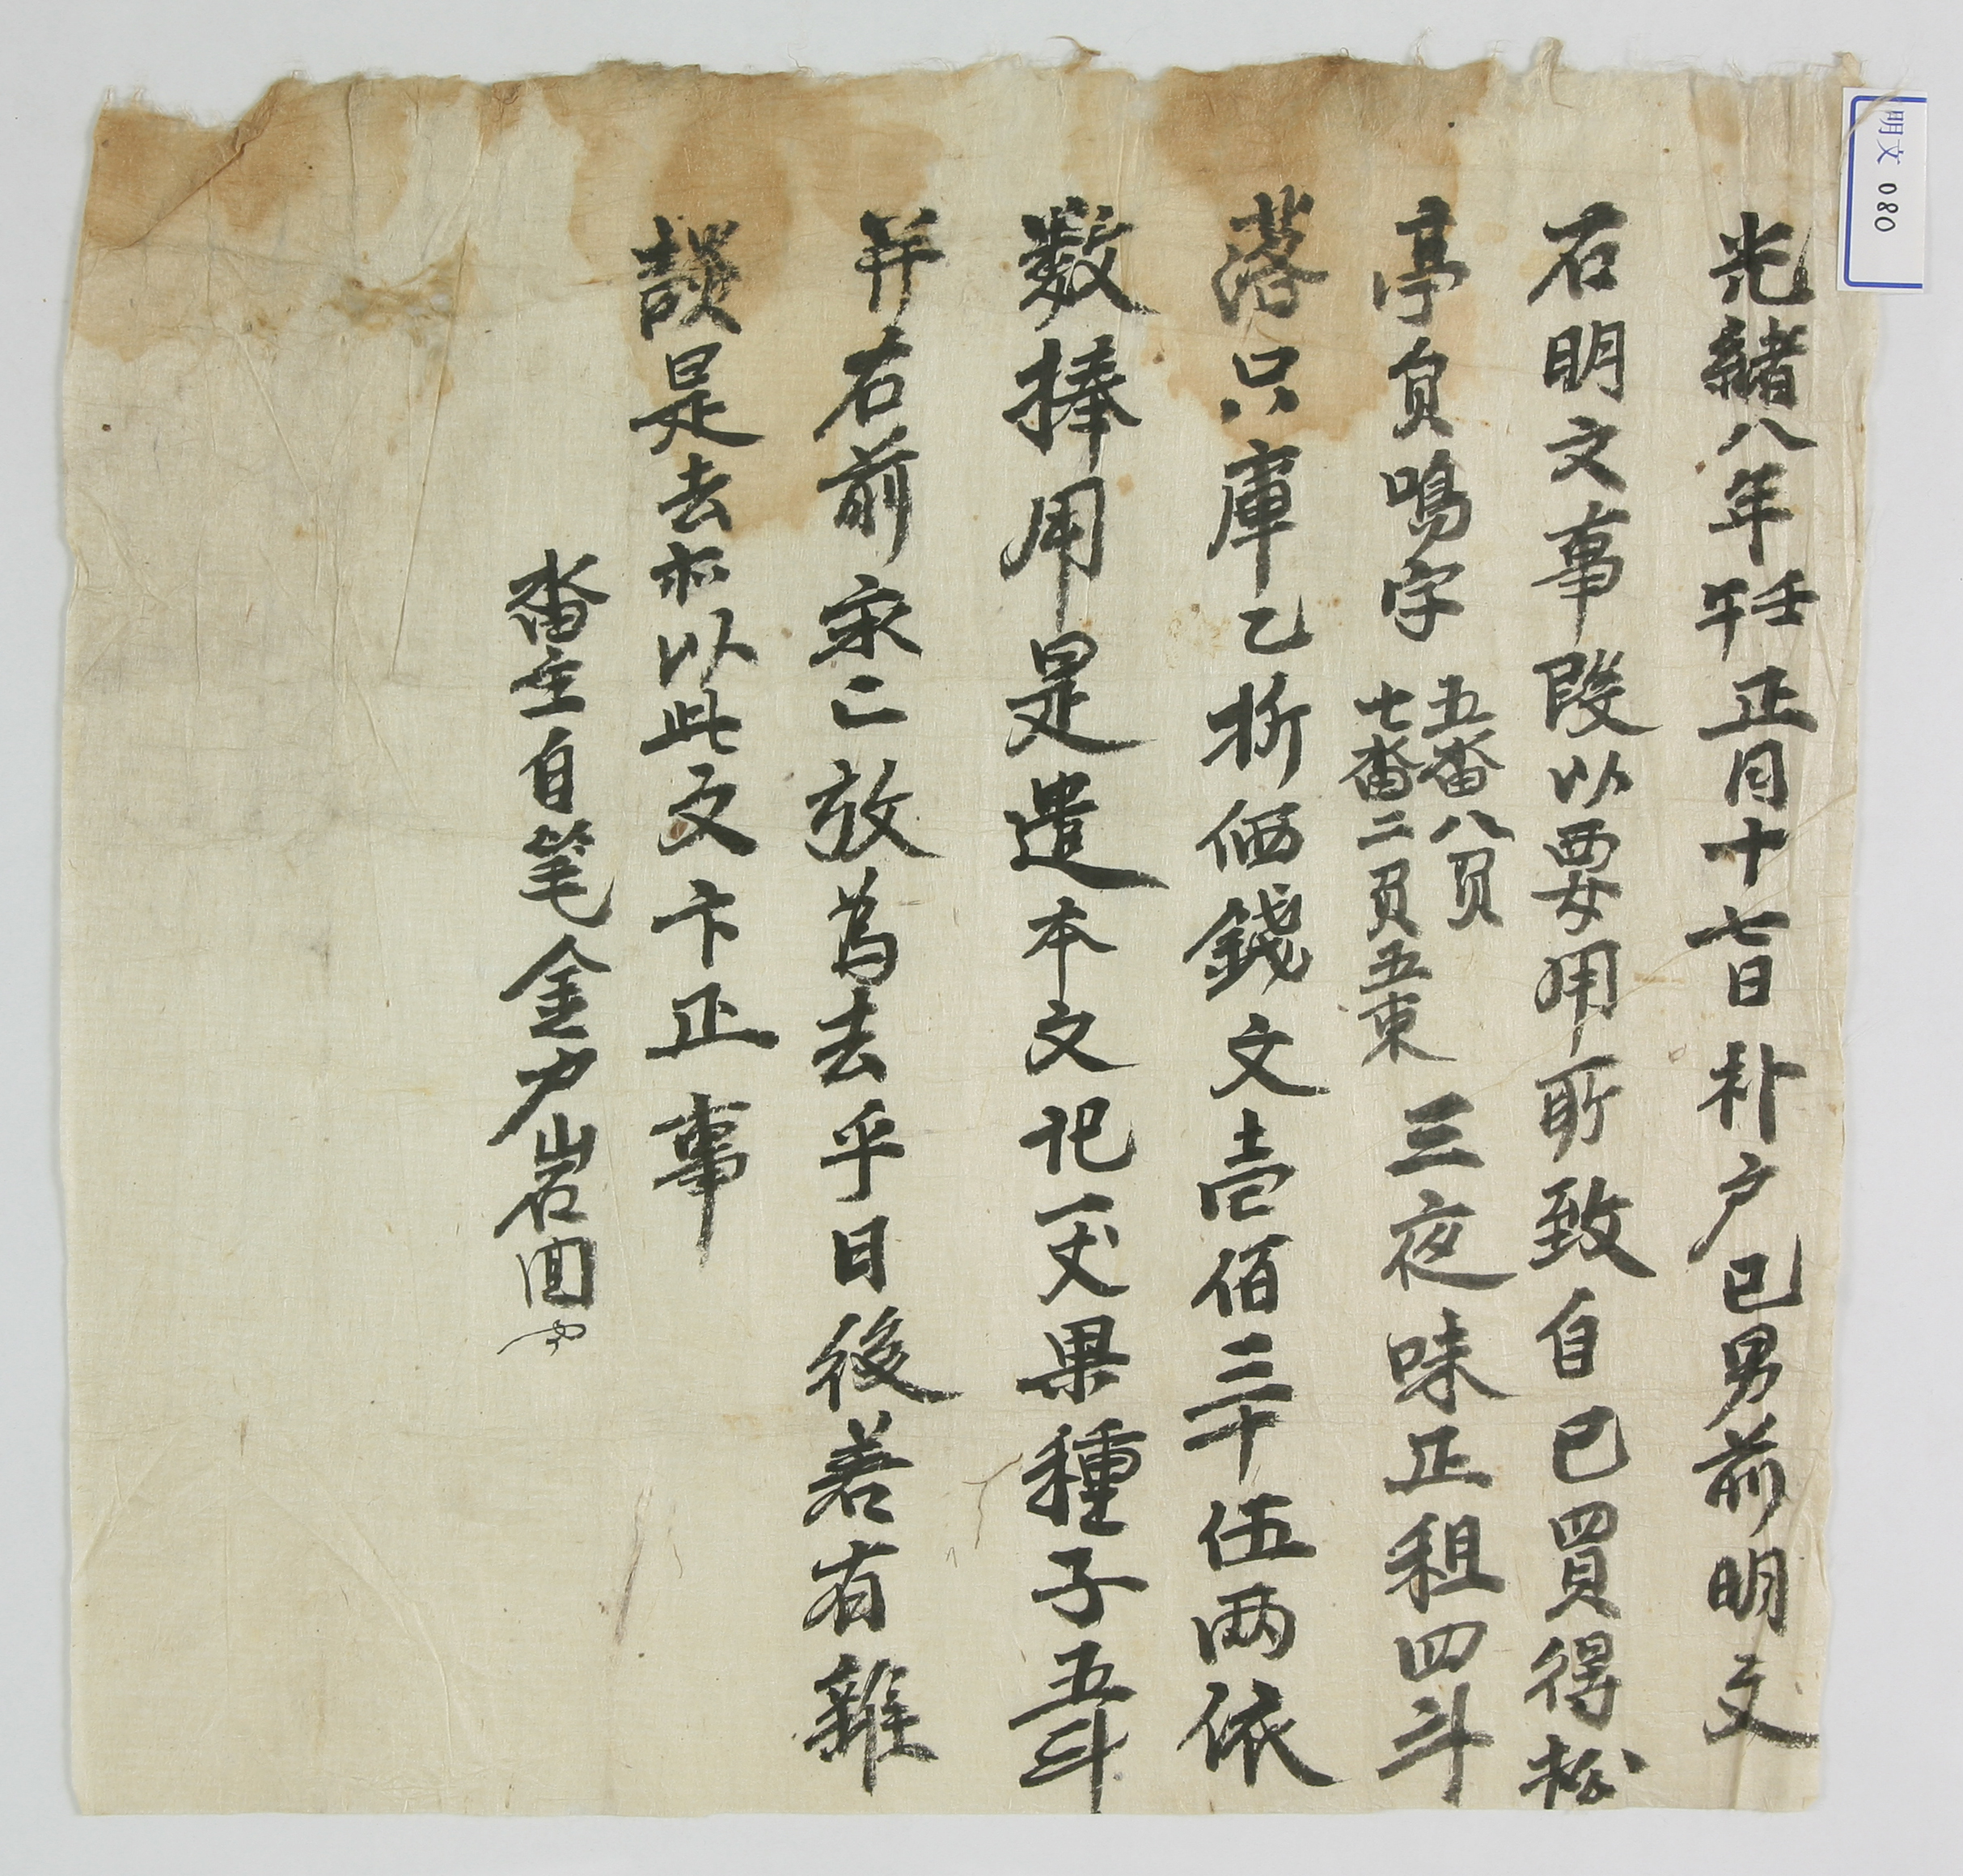 光緖八年壬午正月十七日朴戶巳男前明文
右明文事段以要用所致自己買得松
亭員鳴字五畓八負七畓二負五束三夜味正租四斗
落只庫乙折価錢文壹佰三十伍兩依
数捧用是遣本文記一丈果種子五斗
幷右前永亡放爲去乎日後若有雜
談是去亦以此文卞正事
畓主自筆金戶岩回
明文 080